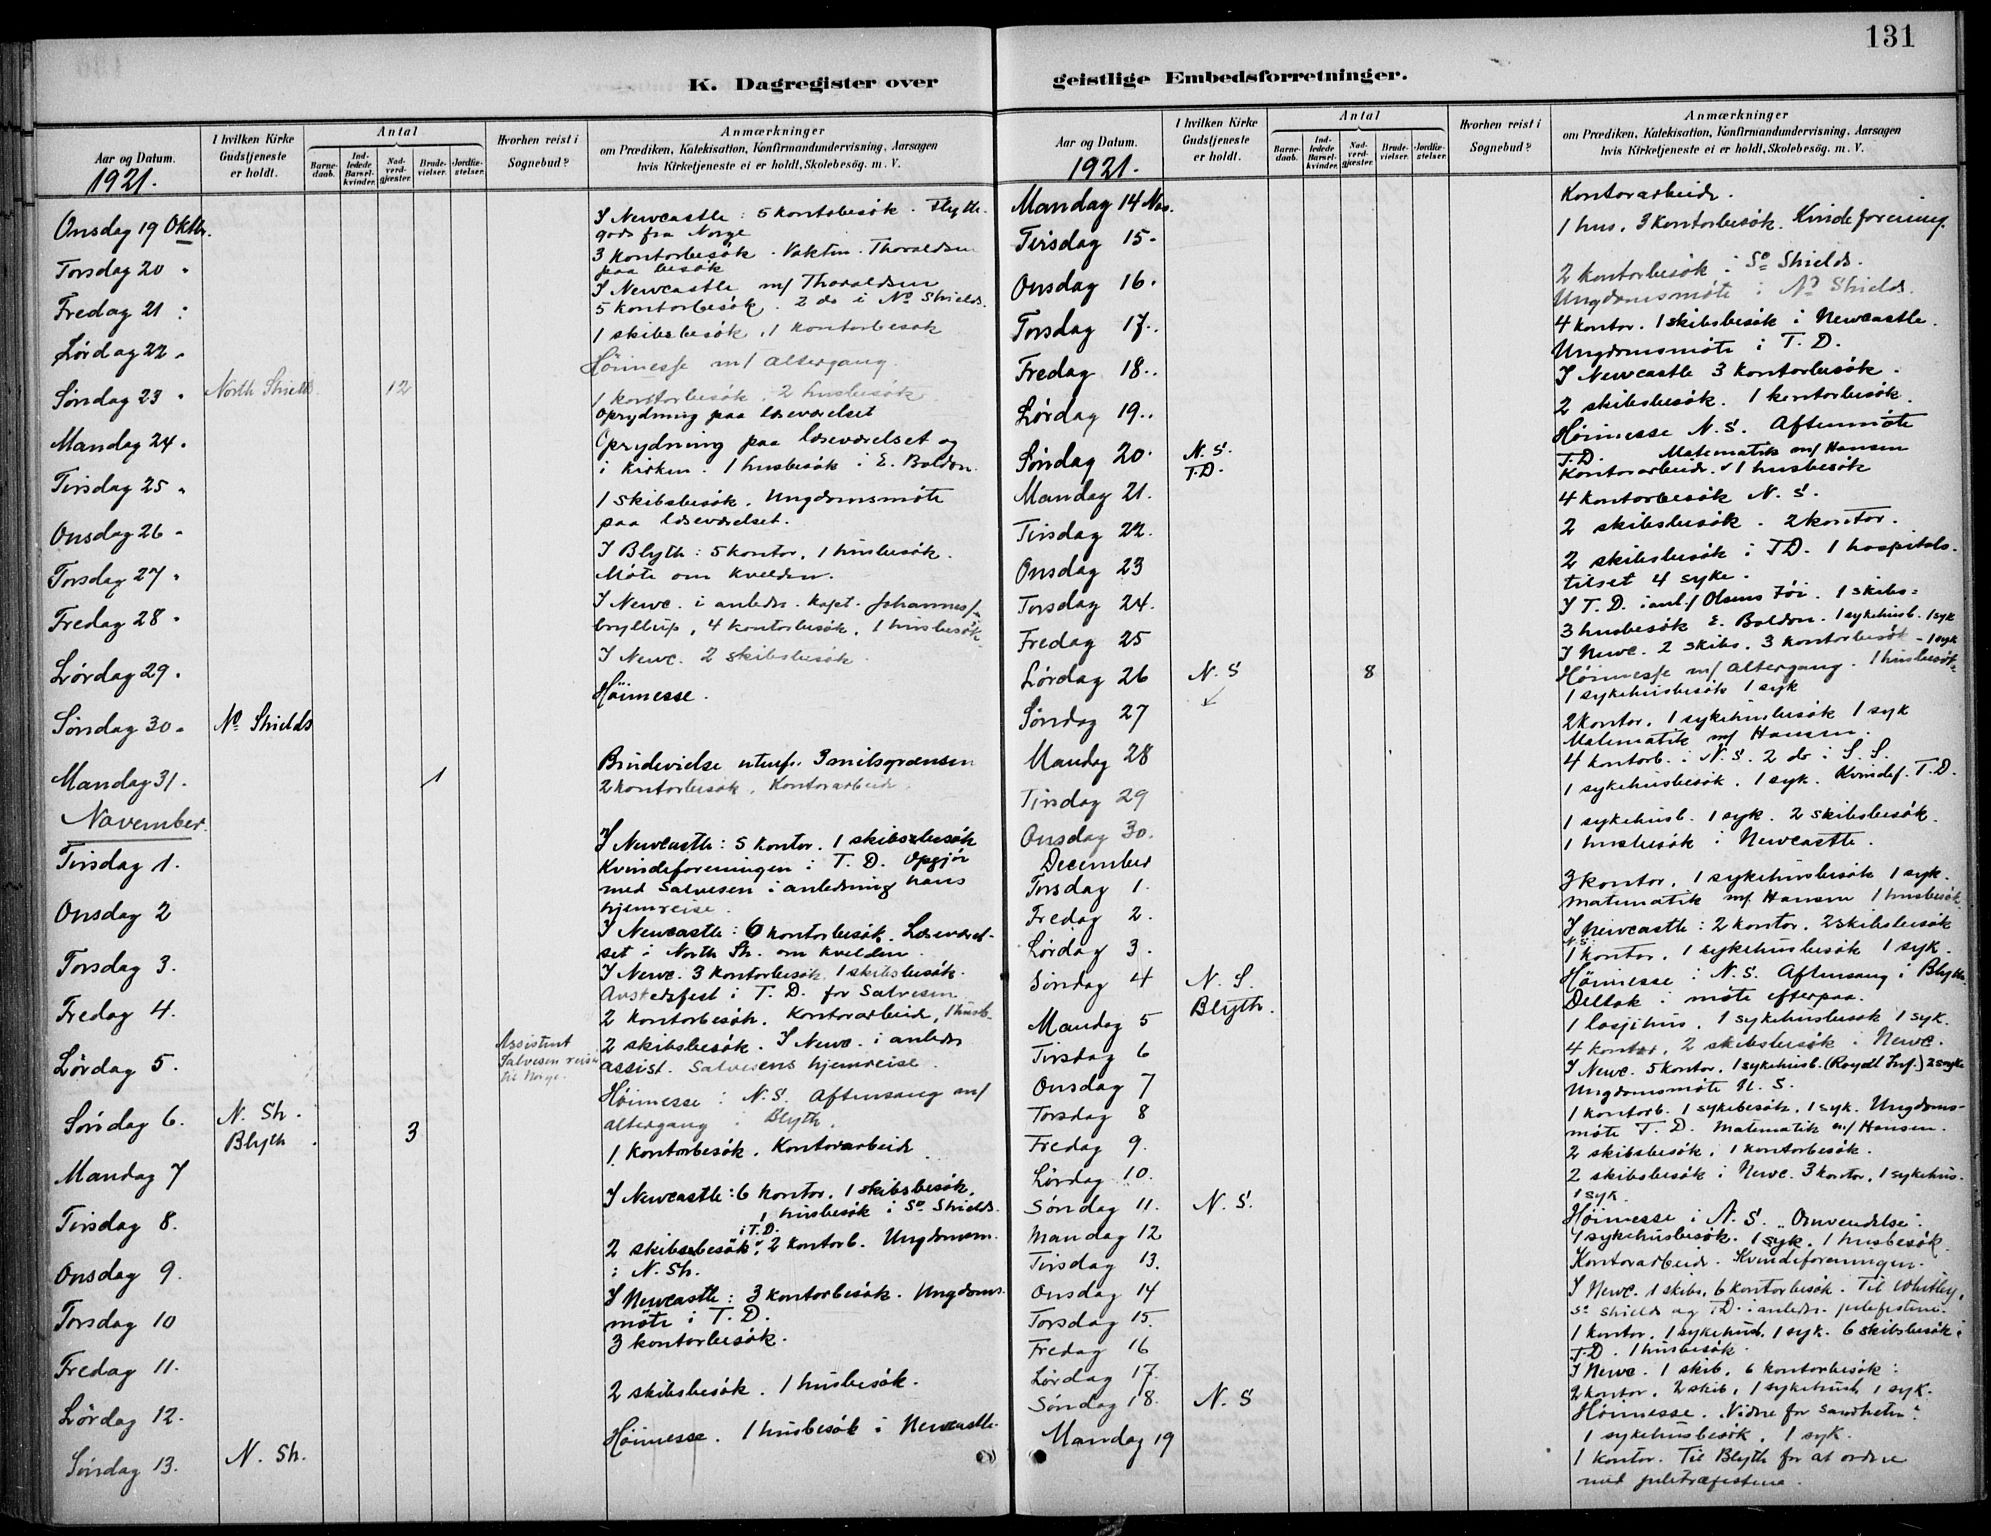 131
K. Dagregister over
Aar og Datum.
1921.
I hvilken Kirke Gudstjeneste er holdt.
Antal
Barnedaab.
Indledede Barselkvinder.
Nadverdgjæster.
Brudevielser.
Jordfæstelser.
Hvorhen reist i Sognebud?
Anmærkninger
om Prædiken, Katekisation, Konfirmandundervisning, Aarsagen
hvis Kirketjeneste ei er holdt, Skolebesög. m. V.
Onsdag 19 Oktbr.
I Newcastle: 5 kontobesök. Flytte-
gods fra Norge
Torsdag 20 "
3 kontorbesök. Vaktm. Thoraldsen
paa besök
Fredag 21 "
I Newcastle m/ Thoraldsen
5 kontorbesök. 2 do i No Shields.
Lördag 22 "
1 skibsbesök, 1 kontorbesök
Söndag 23 " North Shields 12
Höimesse m/ altergang.
Mandag 24 "
1 kontorbesök. 2 husbesök.
Oprydning paa læseværelset
Tirsdag 25 "
Oprydning paa læseværelset og
i kirken. 1 husbesök i E. Boldon.
Onsdag 26 "
1 skibsbesök. Ungdomsmöte
paa læseværelset.
Torsdag 27 "
I Blyth: 5 kontor, 1 husbesök.
Möte om kvelden.
Fredag 28 "
I Newc. i anledn. Kapt. Johannes
bryllup, 4 kontorbesök, 1 husbesök
Lördag 29 "
I Newc. 2 skibsbesök.
Söndag 30 " No Shields
Höimesse.
Mandag 31. 1
Brudevielse utenf. 3milsgrænsen
2 kontorbesök. Kontorarbeide
November.
Tirsdag 1.
I Newcastle: 5 kontor. 1 skibsbesök
Kvindeforeningen i T. D. Opgjör
med Salvesen i anledning hans
hjemreise.
Onsdag 2
I Newcastle: 6 kontorbesök. Læseværel-
set i North Sh. om kvelden.
Torsdag 3.
I Newc. 3 kontorbesök, 1 skibsbesök.
Avskedsfest i T. D. for Salvesen.
Fredag 4.
2 kontorbesök. Kontorarbeide, 1 husb.
Lördag 5.
Assistent
Salvesen reiser
til Norge.
2 skibsbesök. I Newc. i anledn
assist. Salvesens hjemreise.
Söndag 6. N. Sh.
Blyth 3
Höimesse i N.S. Aftensang m/
altergang i Blyth.
Mandag 7
1 Kontorbesök. Kontorarbeide
Tirsdag 8.
I Newcastle: 6 kontor. 1 skibsbesök,
1 husbesök i So Shields.
Onsdag 9.
2 skibsbesök i T.D., 2 kontorb. Ungdomsm.
i N. Sh.
Torsdag 10
I Newcastle: 3 kontorbesök. Ungdoms-
möte i T. D.
Fredag 11.
3 kontorbesök.
Lördag 12.
2 skibsbesök. 1 husbesök.
Söndag 13. N. Sh.
Höimesse. 1 husbesök i Newcastle.
geistlige Embedsforretninger.
Aar og Datum.
1921.
I hvilken Kirke Gudstjeneste er holdt.
Antal
Barnedaab.
Indledede Barselkvinder.
Nadverdgjæster.
Brudevielser.
Jordfæstelser.
Hvorhen reist i Sognebud?
Anmærkninger
om Prædiken, Katekisation, Konfirmandundervisning, Aarsagen
hvis Kirketjeneste ei er holdt, Skolebesög. m. V.
Mandag 14 Nov.
Kontorarbeide.
Tirsdag 15.
1 hus, 3 kontorbesök. Kvindeforening.
Onsdag 16.
2 kontorbesök i So Shields.
Ungdomsmöte i No Shields.
Torsdag 17.
4 kontor. 1 skibsbesök i Newcastle.
Ungdomsmöte i T. D.
Fredag 18.
I Newcastle 3 kontorbesök.
Lördag 19.
2 skibsbesök. 1 kontorbesök.
Söndag 20. N. S.
T.D.
Höimesse N.S. Aftenmöte
T.D.
Mandag 21.
Matematik m/ Hansen
Kontorarbeide. 1 husbesök
Tirsdag 22.
4 kontorbesök N. S.
Onsdag 23
2 skibsbesök. 2 kontor.
Torsdag 24.
2 skibsbesök i T.D. 1 hospitals-
tilset 4 syke.
Fredag 25
I T. D. i anl. / Olsens 1 skibs=
3 husbesök E. Boldon. 1 sykehusb. 1 syk
Lördag 26 N. S 8
I Newc. 2 skibs. 3 kontorbesök - 1 syk
Söndag 27
Höimesse m/ altergang. 1 husbesök
1 sykehusbesök 1 syk
Mandag 28
2 kontor, 1 sykehusbesök 1 syk
Matematik m/ Hansen.
Tirsdag 29
4 kontorb. i N. S. 2 do i S. S.
1 sykehusbesök. 1 syk. Kvindef. T. D.
Onsdag 30.
1 sykehusb. 1 syk. 2 skibsbesök.
1 husbesök i Newcastle.
December
Torsdag 1.
3 kontor, 1 sykehusbesök 1 syk.
matematik m/ Hansen 1 husbesök
Fredag 2.
I Newcastle: 2 kontor. 2 skibsbesök
Lördag 3.
N.S.
1 kontor, 1 sykehusbesök 1 syk.
Söndag 4 N. S.
Blyth.
Höimesse i N.S. Aftensang i Blyth.
Deltok i möte efterpaa.
Mandag 5
1 losjihus, 1 sykehusbesök 1 syk.
Tirsdag 6
4 kontor, 2 skibsbesök. Newc.
Onsdag 7
I Newc. 5 kontor, 1 sykehusb. (Royal Inf.) 2 syke
Ungdomsmöte N. S.
Torsdag 8
1 kontorb. 1 sykebesök, 1 syk. Ungdoms-
möte T. D. Matematik m/ Hansen.
Fredag 9.
2 skibsbesök, 1 kontorbesök.
Lördag 10.
2 skibsbesök i Newc. 3 kontor, 1 sykehus.
1 syk.
Söndag 11. N. S.
Höimesse i N. S. "Omvendelse".
Mandag 12
1 sykehusbesök. 1 syk. 1 husbesök
Tirsdag 13.
Kontorarbeide. Kvindeforeningen.
Onsdag 14
I Newc. 1 skibs, 6 kontorbesök. Til Whitley,
So Shields og T.D. i anledn. julefestene.
Torsdag 15.
1 kontor, 1 sykehusb, 1 syk. 6 skibsbesök i
T.D. 1 husbesök.
Fredag 16
I Newc. 1 skib, 6 kontorbesök.
Lördag 17.
2 kontor, 2 skib, 1 sykehusb, 1 syk.
Söndag 18. N. S
Höimesse. Vidne for sandheten.
1 sykehusbesök, 1 syk.
Mandag 19
1 kontor. Til Blyth for at ordne
med juletræfestene.